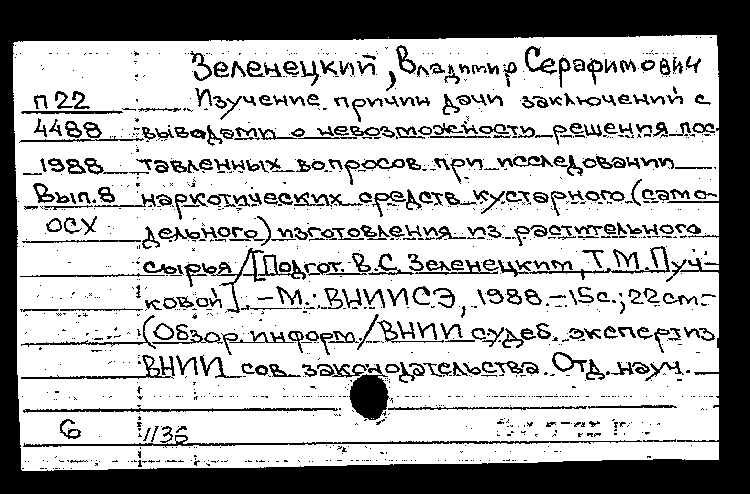 Зеленецкий, Владимир Серафимович
п22 Изучение причин дачи заключений с
4488 выводами о невозможности решения пос-
1988 тавленных вопросов при исследовании
Вып.8 наркотических средств кустарного (само-
ОСХ дельного) изготовления из растительного
сырья /[Подгот. В.С. Зеленецким, Т.М. Пуч-
ковой]. – М.: ВНИИСЭ, 1988. – 15с.; 22см. –
(Обзор. информ. / ВНИИ судеб. экспертиз,
ВНИИ сов. законодательства. Отд. науч.
6 1136